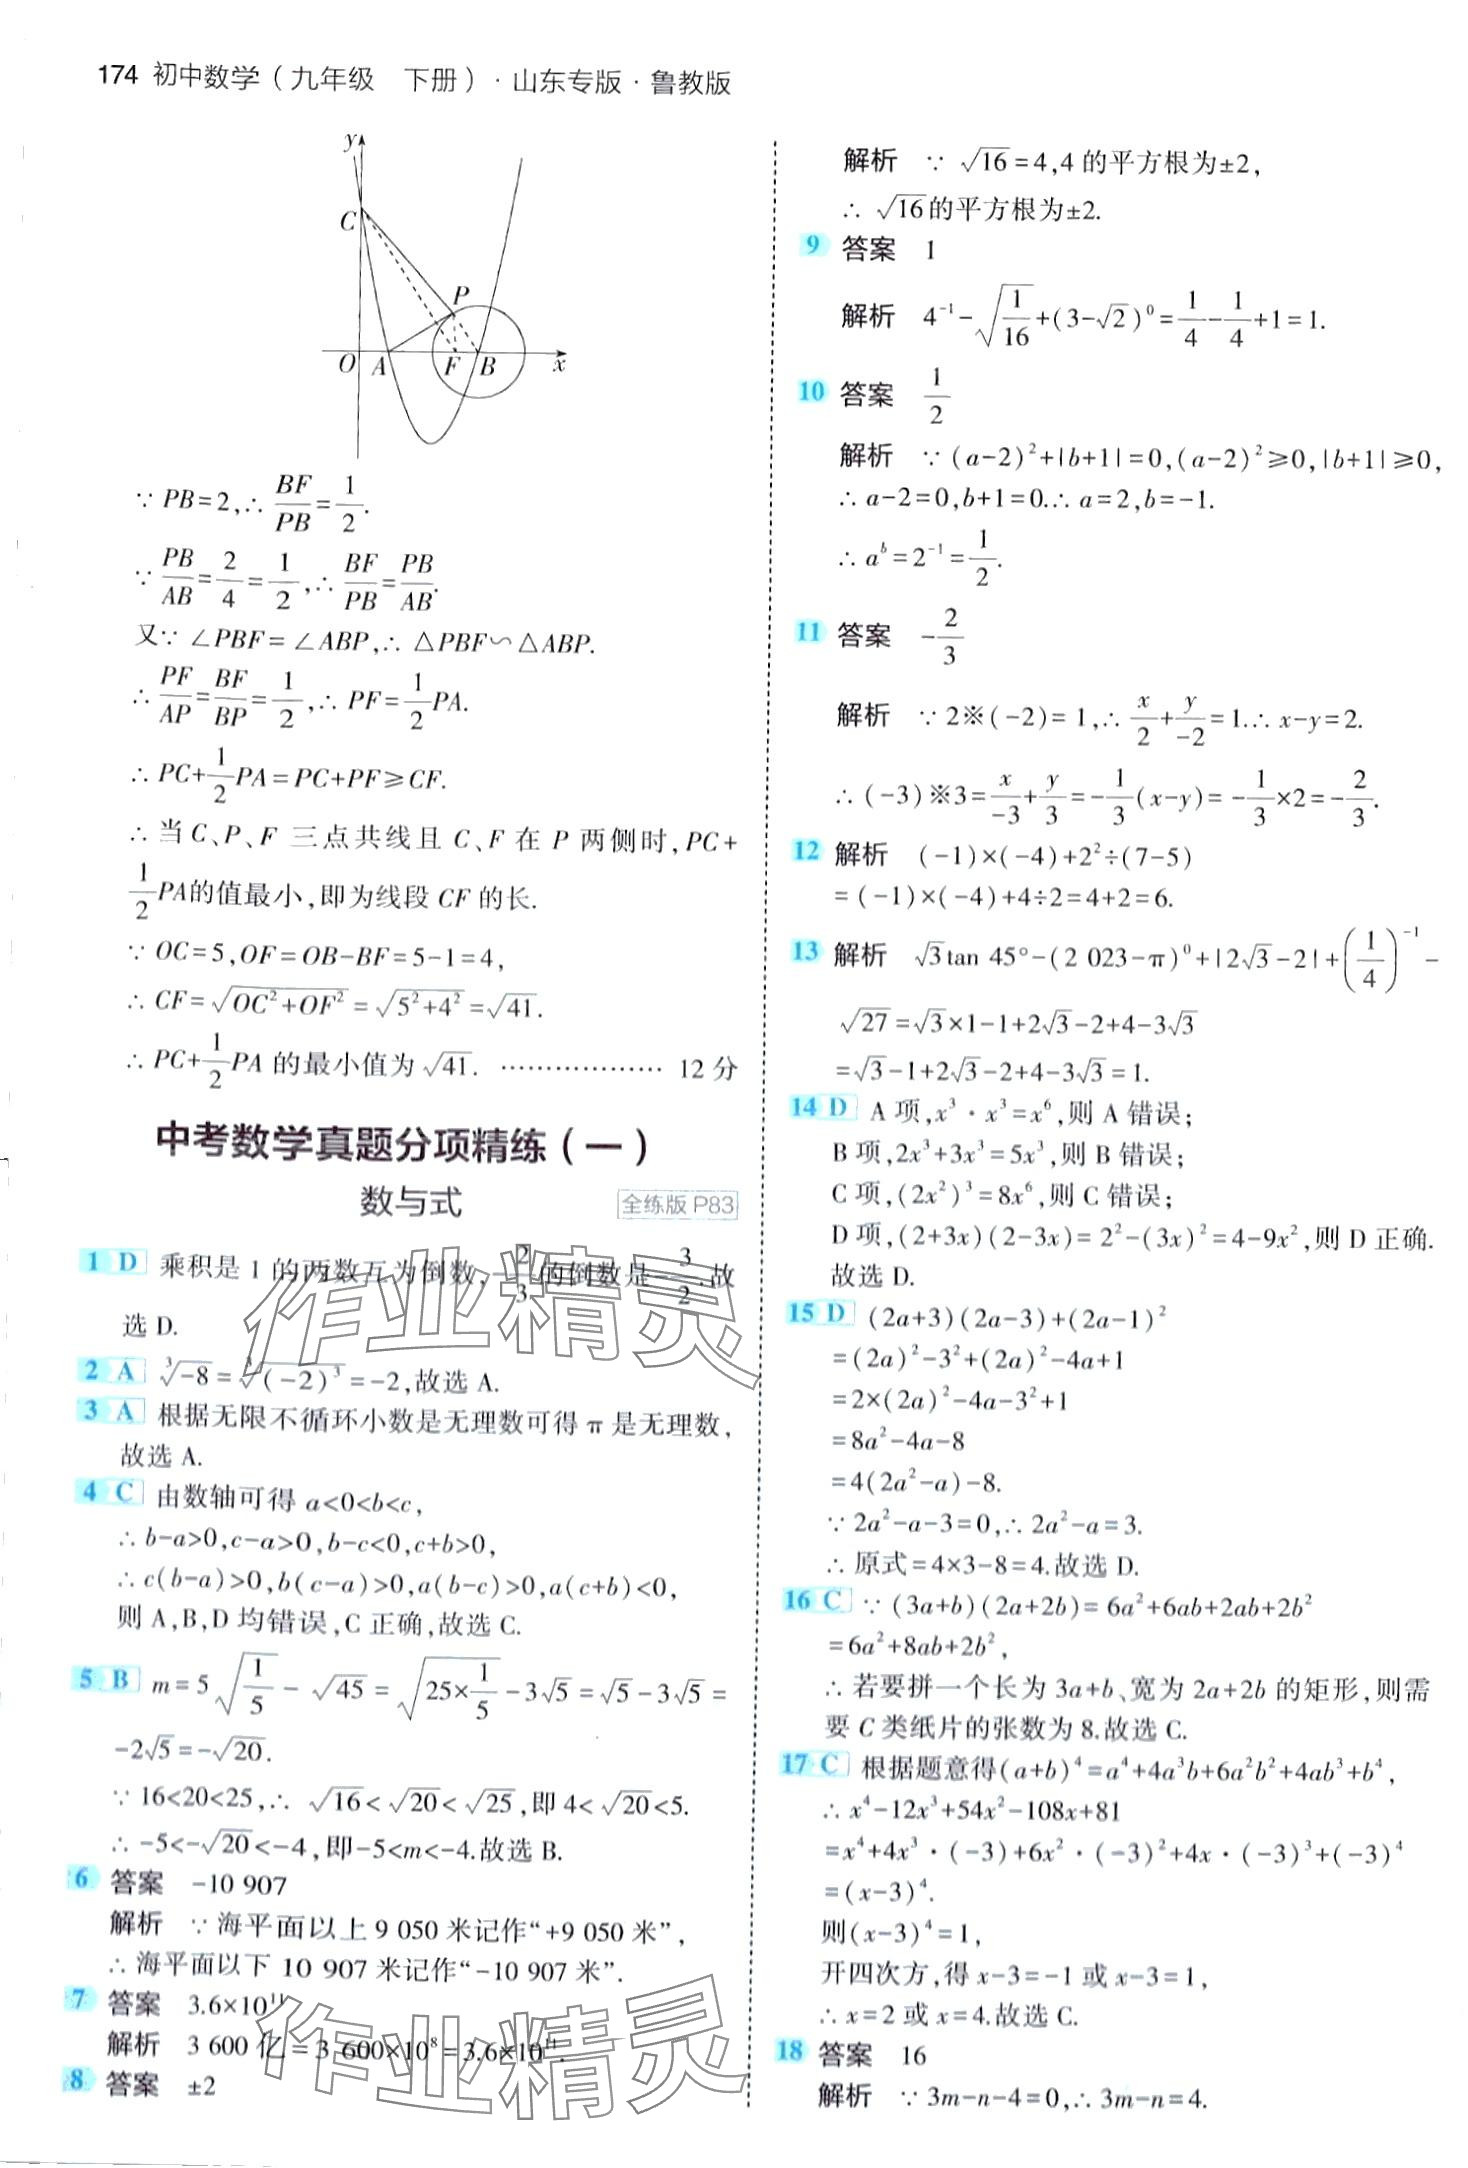 174 初中数学(九年级 下册)·山东专版·鲁教版
y
C
P
O A F B x
∵ PB=2,∴ BF/PB=1/2.
∵ PB/AB=2/4=1/2,∴ BF/PB=PB/AB.
又∵ ∠PBF=∠ABP,∴ △PBF∽△ABP.
∴ PF/AP=BF/BP=1/2,∴ PF=1/2PA.
∴ PC+1/2PA=PC+PF≥CF.
∴ 当 C、P、F 三点共线且 C、F 在 P 两侧时,PC+
1/2PA的值最小,即为线段 CF 的长.
∵ OC=5,OF=OB-BF=5-1=4,
∴ CF=√(OC²+OF²)=√(5²+4²)=√41.
∴ PC+1/2PA 的最小值为 √41. ……………… 12 分
中考数学真题分项精练(一)
数与式 全练版 P83
1 D 乘积是 1 的两数互为倒数,-2/3的倒数是-3/2.故
选 D.
2 A ∛-8=∛(-2)³=-2,故选 A.
3 A 根据无限不循环小数是无理数可得 π 是无理数,
故选 A.
4 C 由数轴可得 a<0<b<c,
∴ b-a>0,c-a>0,b-c<0,c+b>0,
∴ c(b-a)>0,b(c-a)>0,a(b-c)>0,a(c+b)<0,
则 A,B,D 均错误,C 正确,故选 C.
5 B m=5√(1/5)-√45=√(25×1/5)-3√5=√5-3√5=
-2√5=-√20.
∵ 16<20<25,∴ √16<√20<√25,即 4<√20<5.
∴ -5<-√20<-4,即-5<m<-4.故选 B.
6 答案 -10 907
解析 ∵ 海平面以上 9 050 米记作“+9 050 米”,
∴ 海平面以下 10 907 米记作“-10 907 米”.
7 答案 3.6×10¹¹
解析 3 600 亿=3 600×10⁸=3.6×10¹¹.
8 答案 ±2
解析 ∵ √16=4,4 的平方根为±2,
∴ √16的平方根为±2.
9 答案 1
解析 4⁻¹-√(1/16)+(3-√2)⁰=1/4-1/4+1=1.
10 答案 1/2
解析 ∵ (a-2)²+|b+1|=0,(a-2)²≥0,|b+1|≥0,
∴ a-2=0,b+1=0.∴ a=2,b=-1.
∴ aᵇ=2⁻¹=1/2.
11 答案 -2/3
解析 ∵ 2※(-2)=1,∴ x/2+y/-2=1.∴ x-y=2.
∴ (-3)※3=x/-3+y/3=-1/3(x-y)=-1/3×2=-2/3.
12 解析 (-1)×(-4)+2²÷(7-5)
=(-1)×(-4)+4÷2=4+2=6.
13 解析 √3tan 45°-(2 023-π)⁰+|2√3-2|+(1/4)⁻¹-
√27=√3×1-1+2√3-2+4-3√3
=√3-1+2√3-2+4-3√3=1.
14 D A 项,x³·x³=x⁶,则 A 错误;
B 项,2x³+3x³=5x³,则 B 错误;
C 项,(2x²)³=8x⁶,则 C 错误;
D 项,(2+3x)(2-3x)=2²-(3x)²=4-9x²,则 D 正确.
故选 D.
15 D (2a+3)(2a-3)+(2a-1)²
=(2a)²-3²+(2a)²-4a+1
=2×(2a)²-4a-3²+1
=8a²-4a-8
=4(2a²-a)-8.
∵ 2a²-a-3=0,∴ 2a²-a=3.
∴ 原式=4×3-8=4.故选 D.
16 C ∵ (3a+b)(2a+2b)=6a²+6ab+2ab+2b²
=6a²+8ab+2b²,
∴ 若要拼一个长为 3a+b、宽为 2a+2b 的矩形,则需
要 C 类纸片的张数为 8.故选 C.
17 C 根据题意得(a+b)⁴=a⁴+4a³b+6a²b²+4ab³+b⁴,
∴ x⁴-12x³+54x²-108x+81
=x⁴+4x³·(-3)+6x²·(-3)²+4x·(-3)³+(-3)⁴
=(x-3)⁴.
则(x-3)⁴=1,
开四次方,得 x-3=-1 或 x-3=1,
∴ x=2 或 x=4.故选 C.
18 答案 16
解析 ∵ 3m-n-4=0,∴ 3m-n=4.
作业精灵
作业精灵